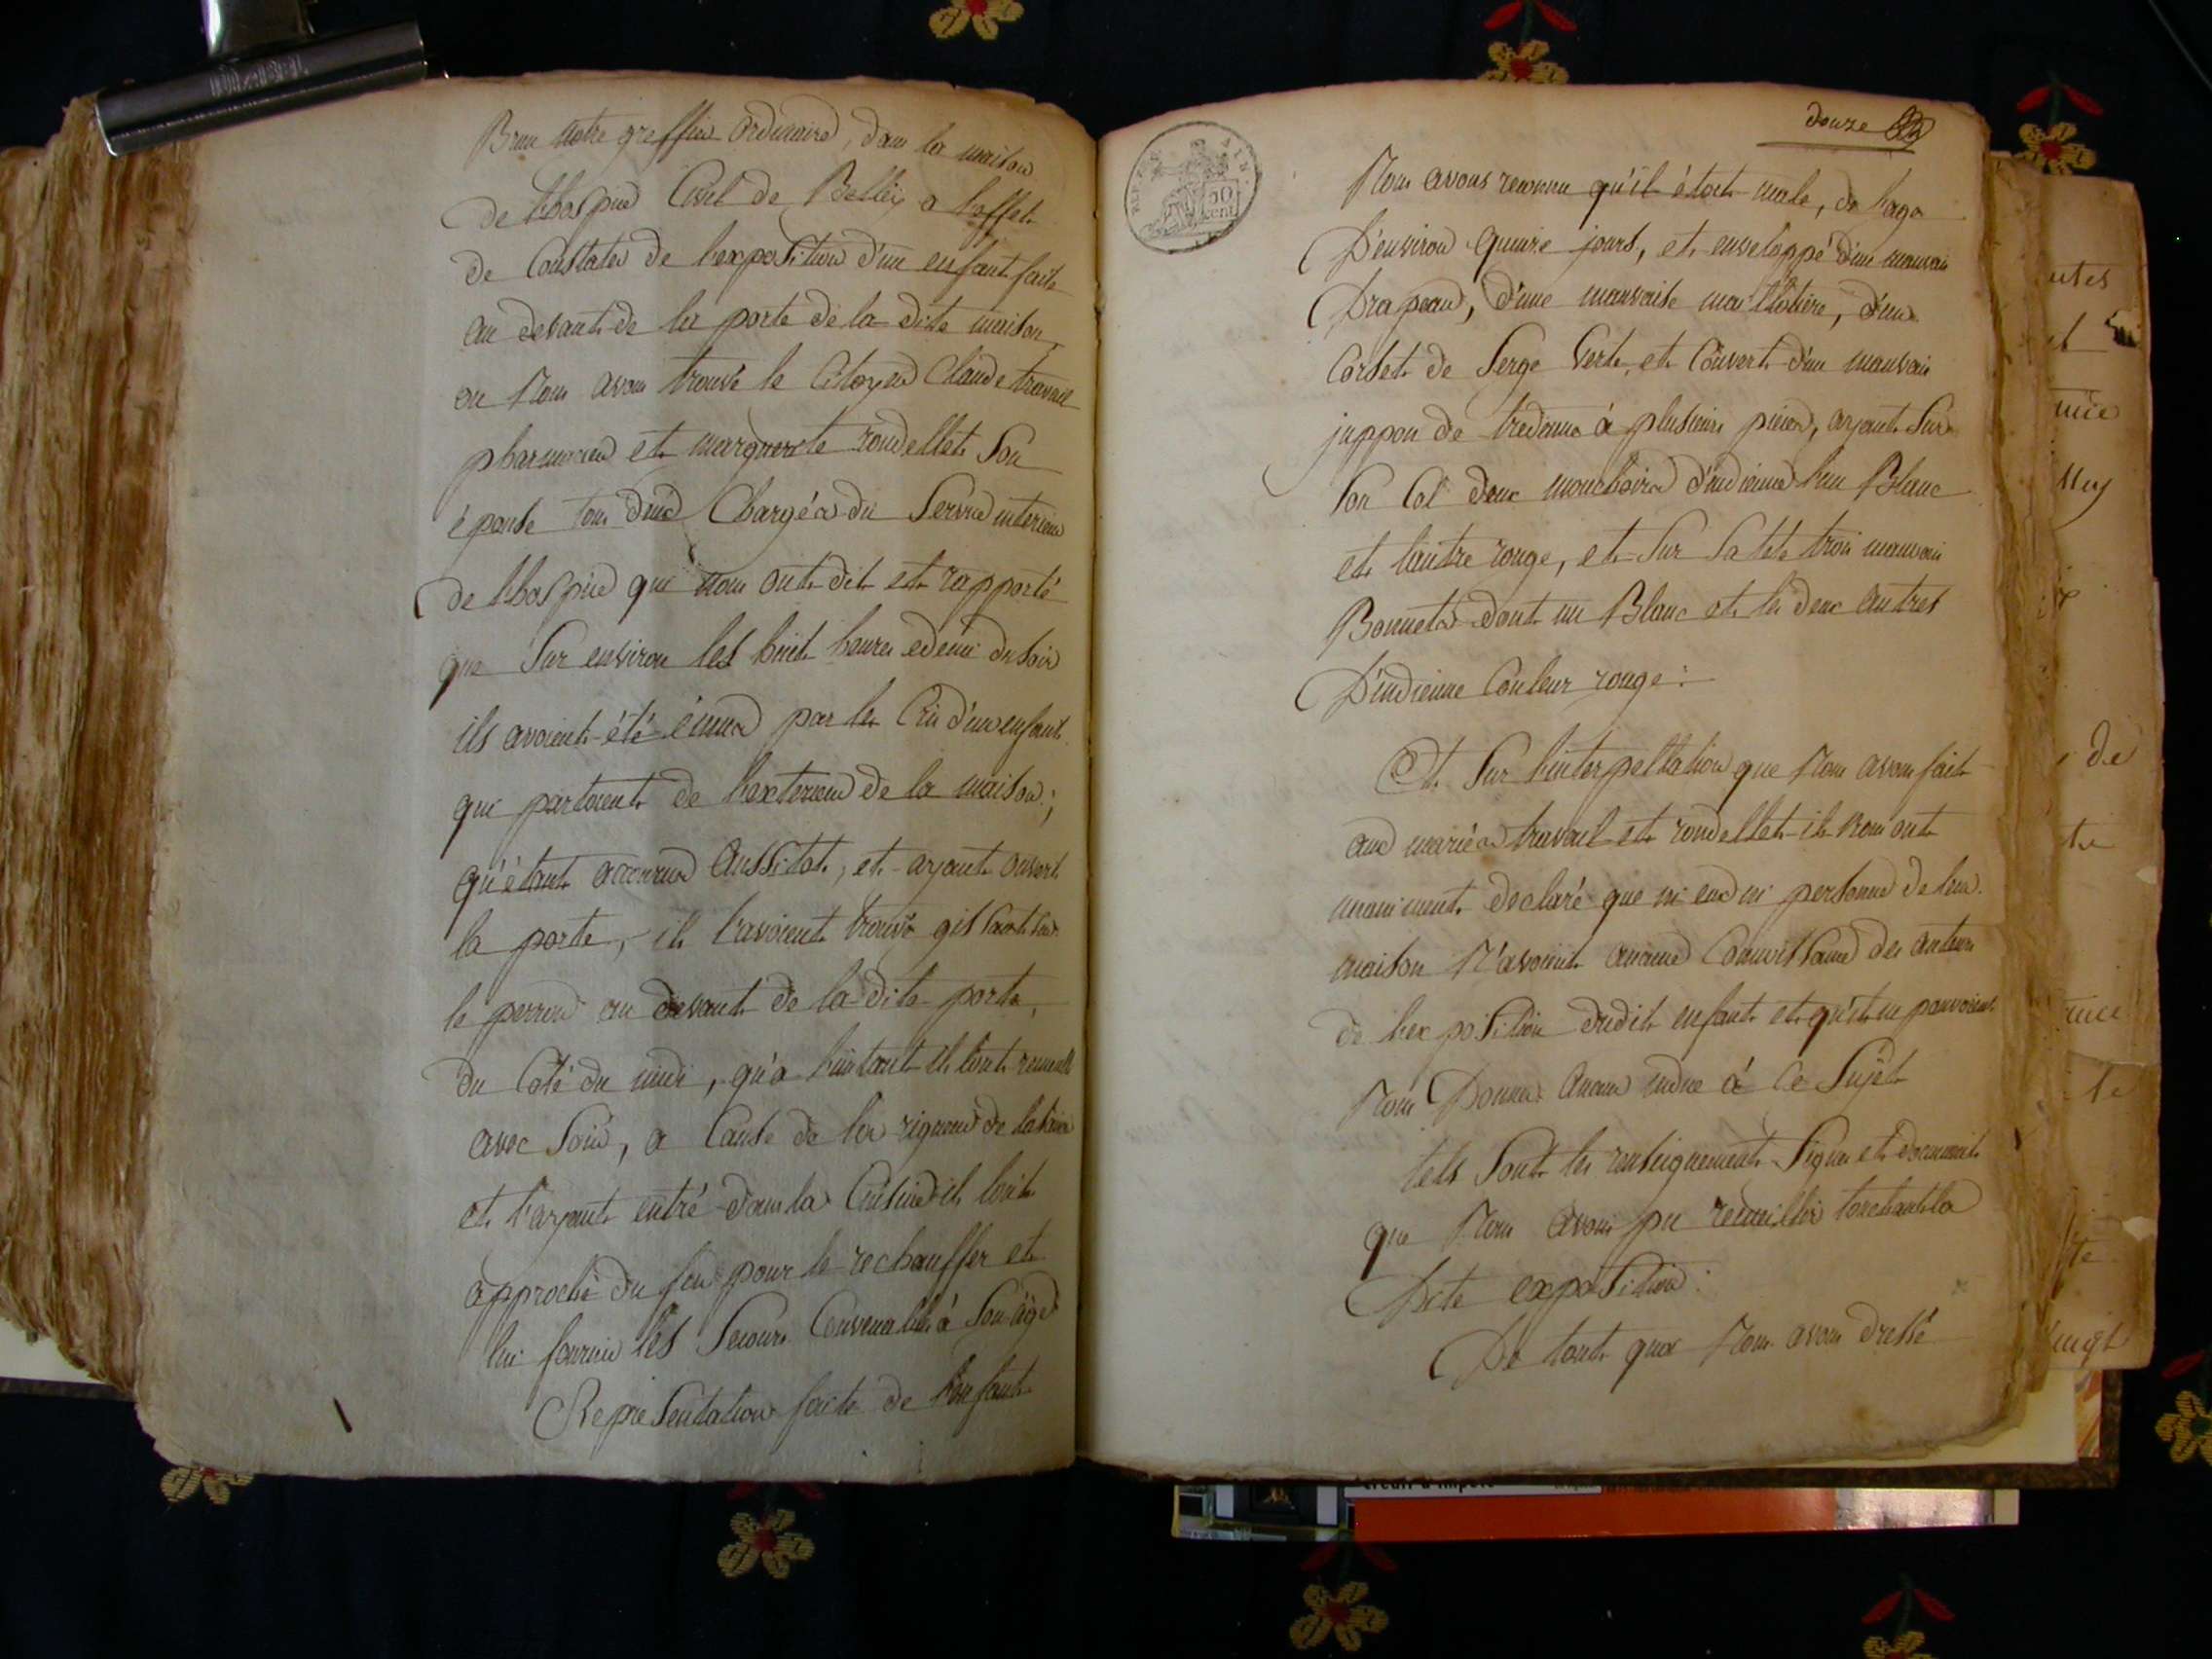 Brun notre greffier ordinaire, dans la maison
de l'hospice Civil de Belley a l'effet
de Constater de l'exposition d'un enfant faite
au devant de la porte de la dite maison,
ou Nous avons trouvé le Citoyen Claude travail
pharmacien et marguerite rondellet Son
épouse tous deux Chargés du Service interieur
de l'hospice qui nous ont dit et rapporté
que Sur environ les huit heures edemi du soir
ils avoient été émus par les Cris d'un enfant
qui partoient de l'exterieur de la maison;
qu'étant accourus Aussitot, et ayant ouvert
la porte, ils l'avoient trouvé gissant sur
le perron au devant de la dite porte,
du Coté du midi, qu'a l'instant ils l'ont recueilli
avec Soin, a Cause de la rigueur de la saison
et l'ayant entré dans la Cuisine ils l'ont
approché du feu pour le rechauffer et
lui fournir les Secours Convenables à Son âge
Représentation faite de l'enfant
douze
50 cent
Nous avons reconnu qu'il étoit male, de l'age
D'environ quinze jours, et enveloppé d'un mauvais
Drapeau, d'une mauvaise maillotière, d'un
Corset de Serge Verte, et Couvert d'un mauvais
juppon de tredenne à plusieurs pièces, ayant Sur
Son Col deux mouchoirs d'indienne l'un Blanc
et l'autre rouge, et Sur Sa tete trois mauvais
Bonnets dont un Blanc et les deux autres
D'indienne Couleur rouge:
Et Sur l'interpellation que Nous avons fait
aux mariés travail et rondellet ils Nous ont
unanimement declaré que ni eux ni personne de leur
maison N'avoient aucune Connoissance des auteurs
de l'exposition dudit enfant et qu'ils ne pouvoient
Nous Donner Aucun indice à Ce Sujet
tels Sont les renseignements Signes et documents
que Nous avons pu recueillir touchant la
Dite exposition:
De tout quoi Nous avons dressé